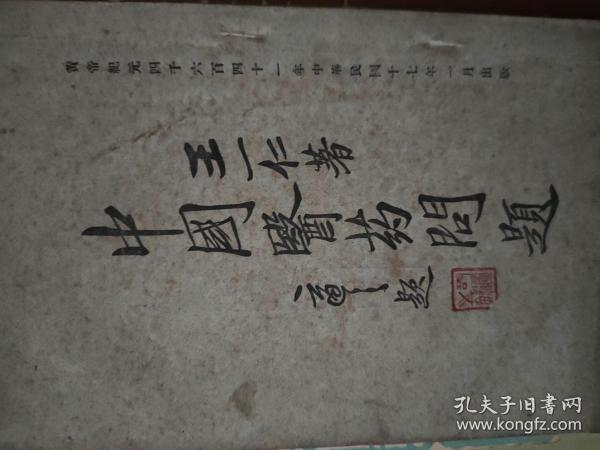 黃帝紀元四千六百四十一年中華民國十七年一月出版
王一仁著
中國醫药問題
題
孔夫子旧书网
www.kongfz.com